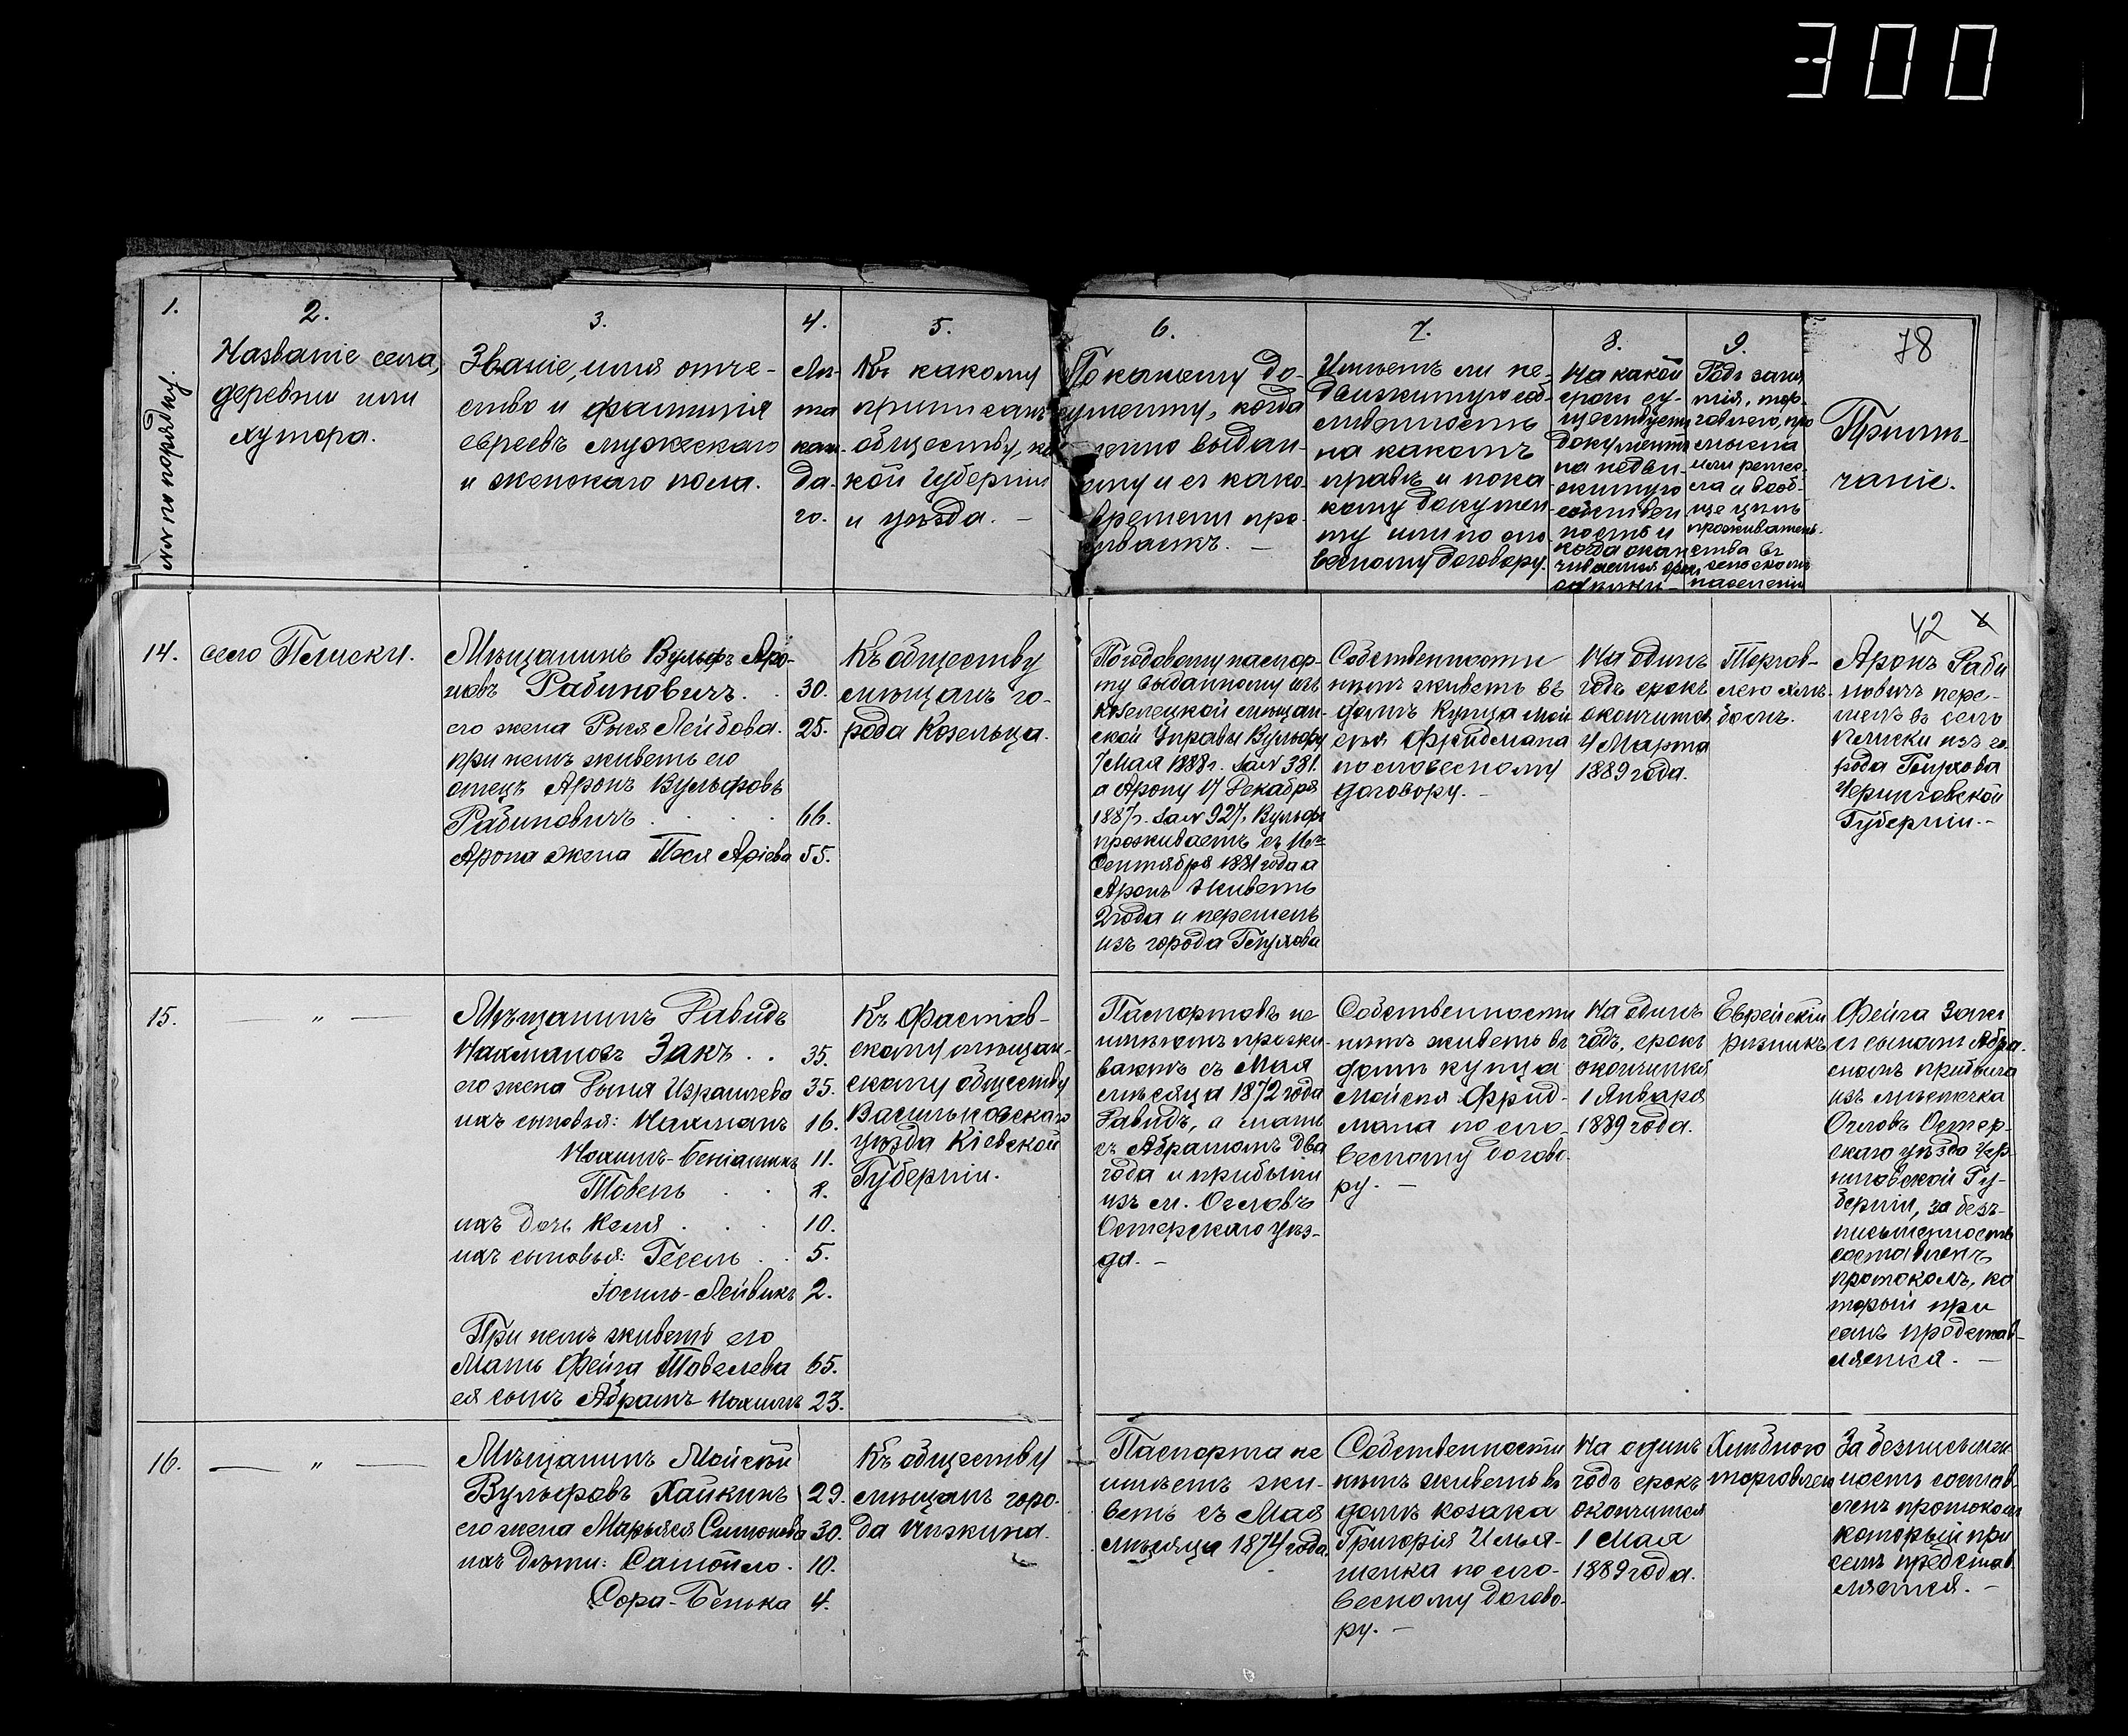 300
1.
№№ по порядку.
2.
Названіе села,
деревни или
хутора.
3.
Званіе, имя отче-
ство и фамилія
евреевъ мужескаго
и женскаго пола.
4.
Лѣ-
та
каж-
да-
го.
5.
Къ какому
приписанъ
обществу, ка
кой губерніи
и уѣзда. —
6.
По какому до-
кументу, когда
выдан-
ному и съ како-
времени про-
живаетъ. —
7.
Имѣетъ ли не-
движимую соб-
ственность
на какомъ
правѣ и пока
кому докумен-
ту или по сло-
весному договору.
8.
На какой
срокъ су-
ществуетъ
документъ
на недви-
жимую
собствен
ность и
когда окан
чивается срокъ
9.
Родъ заня
тія, тор-
говлею, про
мысла
или ремес-
ла и вооб-
ще цѣль
проживатель-
ства въ
сельскомъ
населеніи
78
Примѣ-
чаніе.
14.
село Плиски.
Мѣщанинъ Вульфъ Аро-
новъ Рабиновичъ. . 30.
его жена Рыся Лейбова. 25.
при немъ живетъ его
отецъ Аронъ Вульфовъ
Рабиновичъ . . . . 66.
Арона жена Песя Аріева 55.
Къ обществу
мѣщанъ го-
рода Козельца.
По годовому паспор-
ту выданному изъ
Козелецкой мѣщан-
ской Управы Вульфу
7 Мая 1888 г. за № 381.
а Арону 17 Декабря
1887 г. за № 927, Вульфъ
проживаетъ съ 16го
Сентября 1881 года а
Аронъ живетъ
2 года и перешелъ
изъ города Глухова
Собственности
нѣтъ живетъ въ
домѣ Купца Мой
сея Фридмана
по словесному
договору. —
На одинъ
годъ срокъ
окончится
4 Марта
1889 года.
Торгов-
лею хлѣ-
бомъ.
42
Аронъ Раби
новичъ пере-
шелъ въ село
Плиски изъ го-
рода Глухова
Черниговской
Губерніи. —
15.
— „ —
Мѣщанинъ Давидъ
Нахмановъ Закъ . . 35.
его жена Рыня Израилева 35.
ихъ сыновья: Нахманъ 16.
Нохимъ-Беніаминъ 11.
Товель . . 8.
ихъ дочь Келя . . . 10.
ихъ сыновья: Гесель . . 5.
Іосиль-Лейвикъ 2.
При немъ живетъ его
Мать Фейга Товелева 65.
ея сынъ Абрамъ-Нохимъ 23.
Къ Фастов-
скому мѣщан-
скому обществу
Васильковскаго
уѣзда Кіевской
Губерніи.
Паспортовъ не
имѣютъ прожи-
ваютъ съ Мая
мѣсяца 1872 года
Давидъ, а мать
съ Абрамомъ два
года и прибыли
изъ м. Оглавъ
Остерскаго уѣз-
да. —
Собственности
нѣтъ живетъ въ
домѣ купца
Мойсея Фрид-
мана по сло-
весному догово-
ру. —
На одинъ
годъ, срокъ
окончится
1 Января
1889 года.
Еврейскій
рѣзникъ
Фейга Закъ
съ сыномъ Абра-
момъ прибыла
изъ мѣстечка
Огловъ Остер-
скаго уѣзда Чер-
ниговской Гу-
берніи, за безъ-
письменность
составленъ
протоколъ, ко
торый при
семъ представ-
ляется. —
16.
— „ —
Мѣщанинъ Мойсей
Вульфовъ Хайкинъ 29.
его жена Марьяся Симонова 30.
ихъ дѣти: Самойло. 10.
Сора-Бенька 4.
Къ обществу
мѣщанъ горо-
да Нѣжина.
Паспорта не
имѣетъ жи-
ветъ съ Мая
мѣсяца 1874 года.
Собственности
нѣтъ живетъ въ
домѣ козака
Григорія Илья-
шенка по сло-
весному догово-
ру. —
На одинъ
годъ срокъ
окончится
1 Мая
1889 года.
Хлѣбною
торговлею
За безписьмен
ность состав
ленъ протоколъ
который при
семъ представ
ляется. —